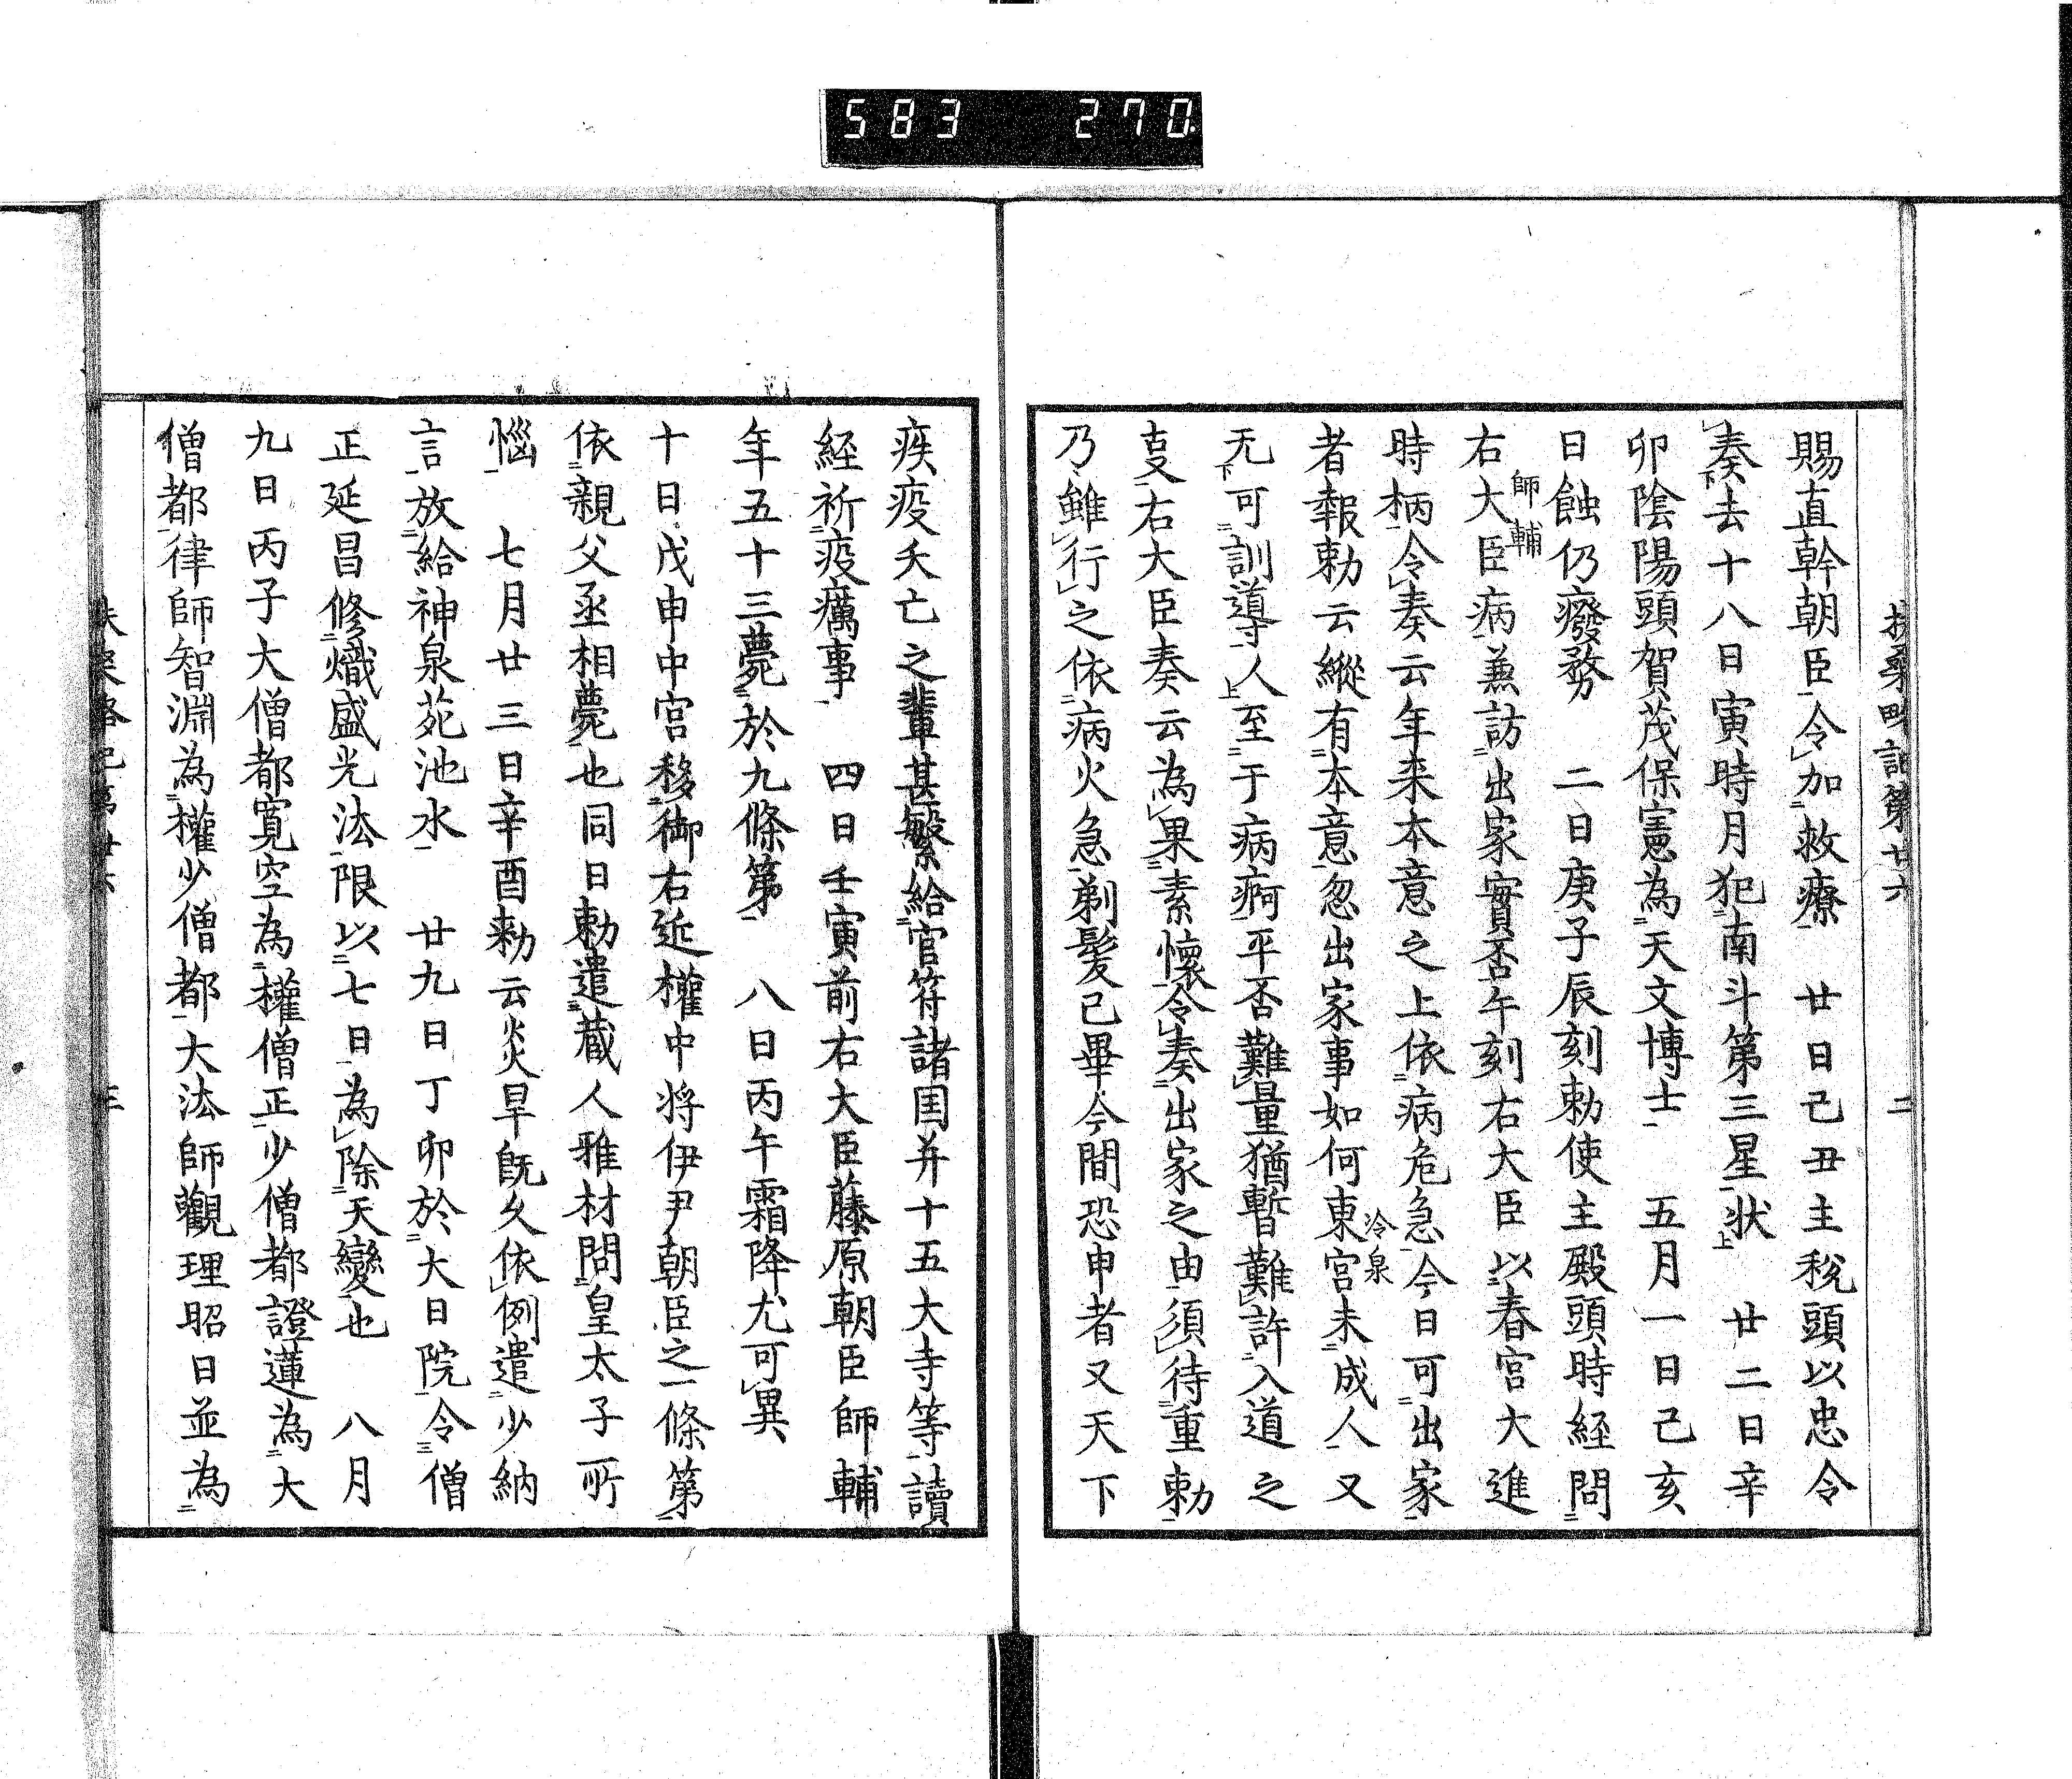 583 270
扶桑略記第廿六 二
賜直幹朝臣令加救療 廿日己丑主税頭以忠令
奏去十八日寅時月犯南斗第三星状 廿二日辛
卯陰陽頭賀茂保憲為天文博士 五月一日己亥
日蝕仍癈務 二日庚子辰刻勅使主殿頭時経問
右大臣病兼訪出家實否午刻右大臣以春宮大進
師輔
時柄令奏云年来本意之上依病危急今日可出家
者報勅云縦有本意忽出家事如何東宮未成人又
冷泉
无可訓導人至于病痾平否難量猶暫難許入道之
㕝右大臣奏云為果素懐令奏出家之由須待重勅
乃雖行之依病火急剃髪已畢今間恐申者又天下
疾疫夭亡之輩甚繁給官符諸国并十五大寺等讀
経祈疫癘事 四日壬寅前右大臣藤原朝臣師輔
年五十三薨於九條第 八日丙午霜降尤可異
十日戊申中宮移御右近權中将伊尹朝臣之一條第
依親父丞相薨也同日勅遣蔵人雅材問皇太子所
悩 七月廿三日辛酉勅云炎旱既久依例遣少納
言放給神泉苑池水 廿九日丁卯於大日院令僧
正延昌修熾盛光法限以七日為除天變也 八月
九日丙子大僧都寛空為權僧正少僧都證蓮為大
僧都律師智淵為權少僧都大法師觀理昭日並為